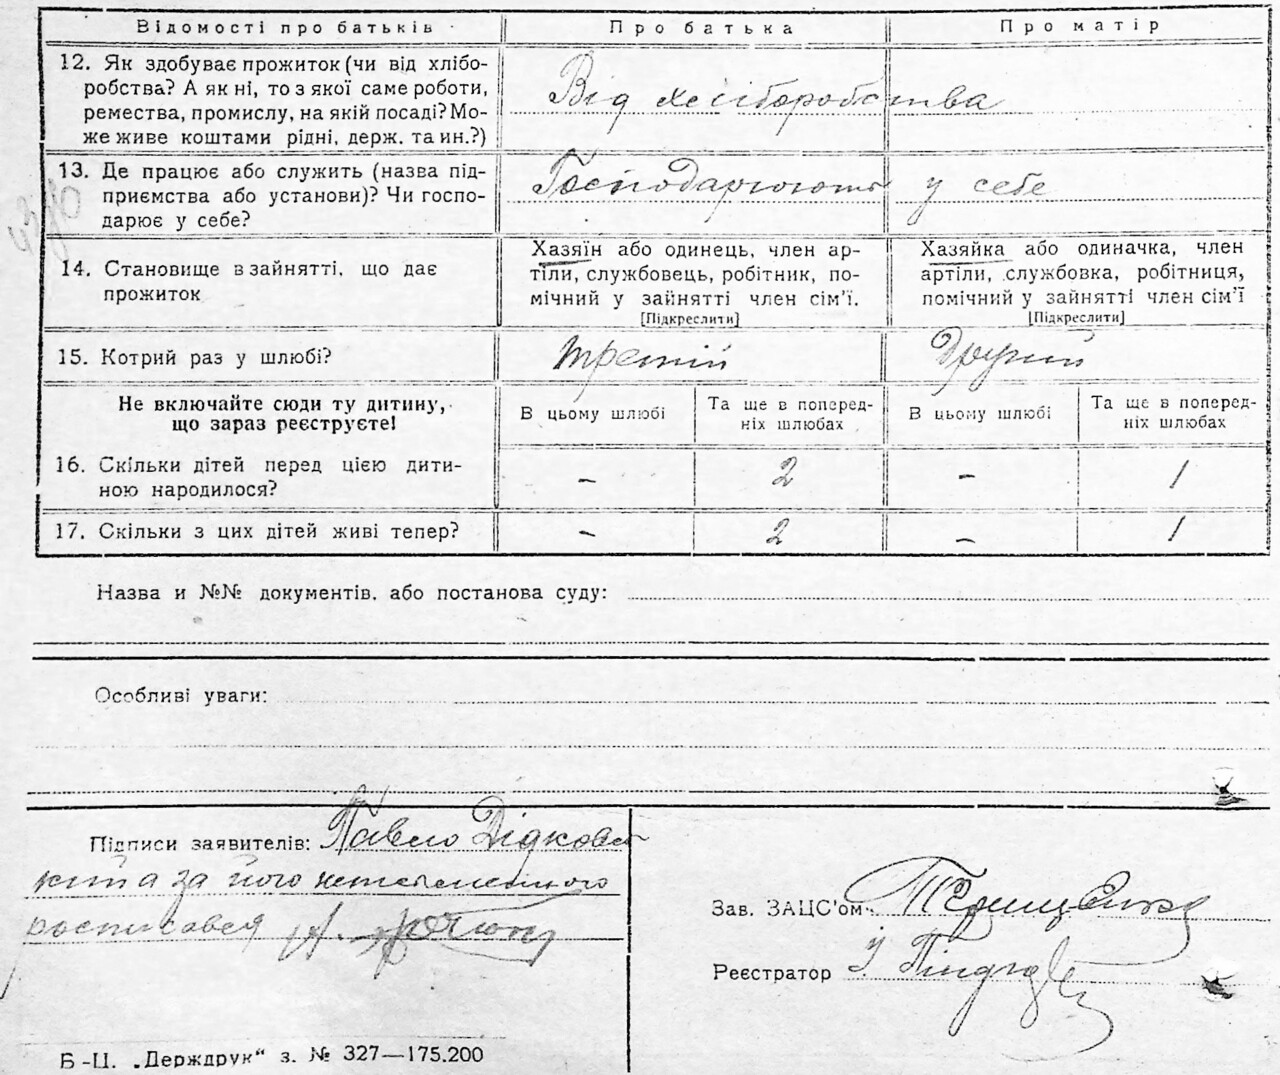 Відомості про батьків Про батька Про матір
12. Як здобуває прожиток (чи від хлібо-
робства? А як ні, то з якої саме роботи,
ремества, промислу, на якій посаді? Мо-
же живе коштами рідні, держ. та ин.?)
Від хліборобства
13. Де працює або служить (назва під-
приємства або установи)? Чи госпо-
дарює у себе?
Господарюють у себе
14. Становище в зайнятті, що дає
прожиток
Хазяїн або одинець, член ар-
тіли, службовець, робітник, по-
мічний у зайнятті член сім'ї.
[Підкреслити]
Хазяйка або одиначка, член
артіли, службовка, робітниця,
помічний у зайнятті член сім'ї
[Підкреслити]
15. Котрий раз у шлюбі? третій Другий
Не включайте сюди ту дитину,
що зараз реєструєте!
В цьому шлюбі
Та ще в поперед-
ніх шлюбах
В цьому шлюбі
Та ще в поперед-
ніх шлюбах
16. Скільки дітей перед цією дити-
ною народилося?
– 2 – 1
17. Скільки з цих дітей живі тепер? – 2 – 1
Назва и №№ документів, або постанова суду:
Особливі уваги:
Підписи заявителів: Павло Дідковс
кий а за його неписьменного
росписався А.
Зав. ЗАЦС'ом
Реєстратор
Б-Ц. „Держдрук“ з. № 327—175.200